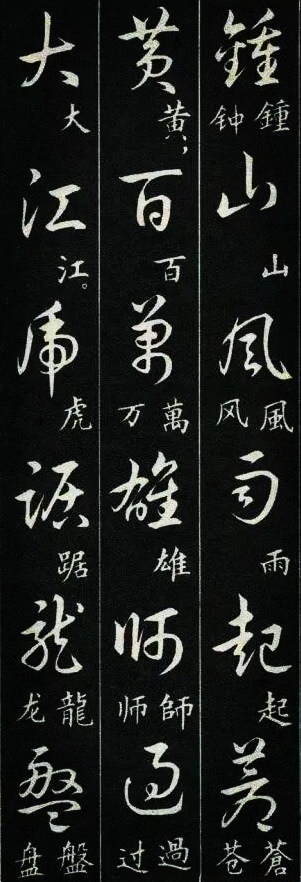 鍾 鍾 钟 山 山 風 風 风 雨 雨 起 起 蒼 蒼 苍
黄 黄， 百 百 萬 萬 万 雄 雄 師 師 师 過 過 过
大 大 江 江。 虎 虎 踞 踞 龍 龍 龙 盤 盤 盘